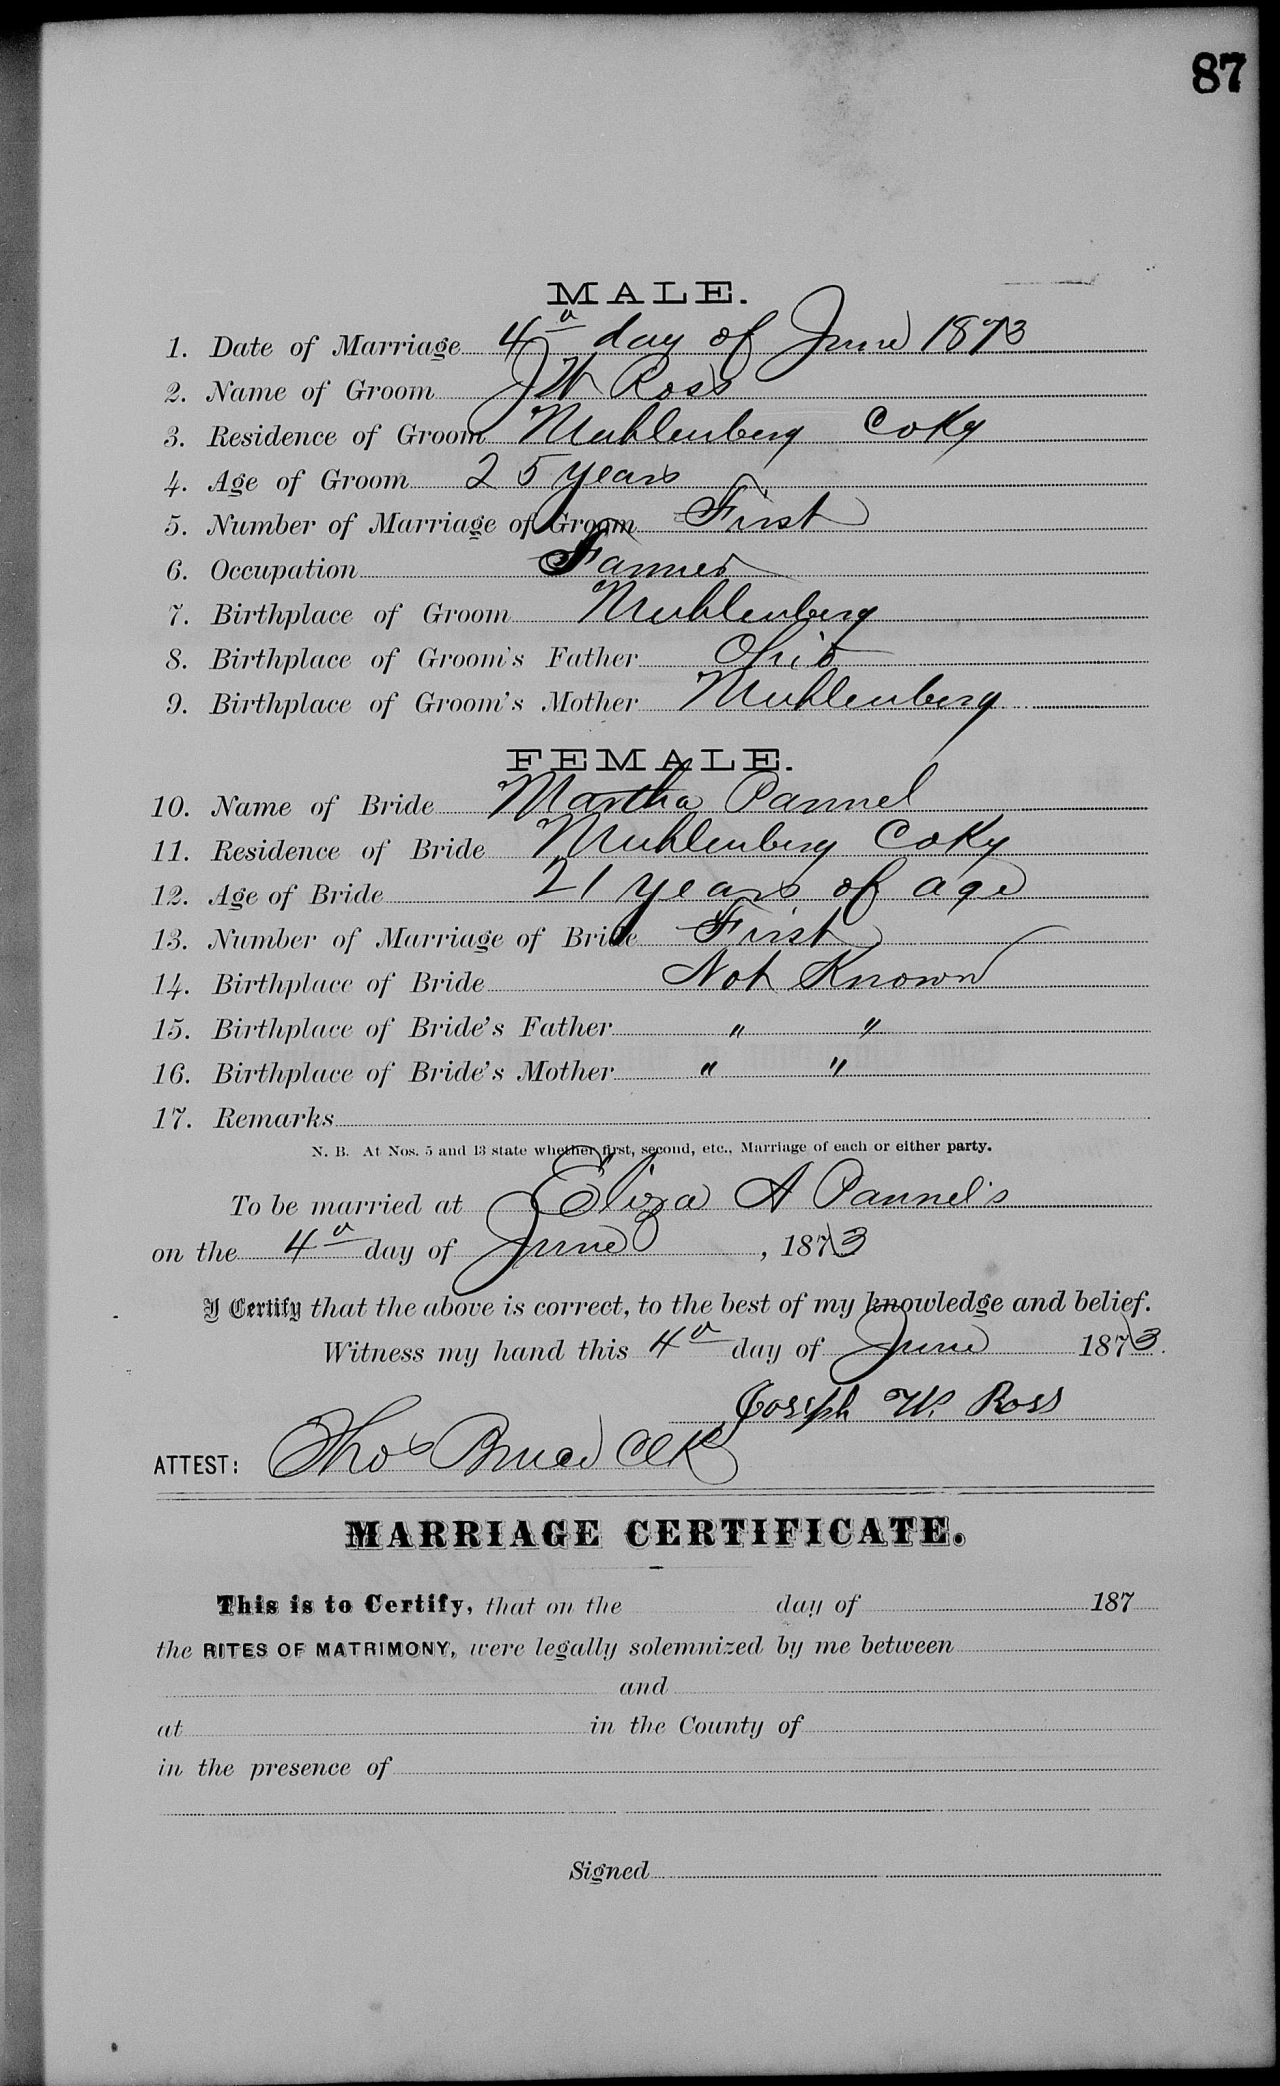 87
MALE.
1. Date of Marriage 4th day of June 1873
2. Name of Groom J W Ross
3. Residence of Groom Muhlenberg Co Ky
4. Age of Groom 25 years
5. Number of Marriage of Groom First
6. Occupation Farmer
7. Birthplace of Groom Muhlenberg
8. Birthplace of Groom's Father Ohio
9. Birthplace of Groom's Mother Muhlenberg
FEMALE.
10. Name of Bride Martha Pannel
11. Residence of Bride Muhlenberg Co Ky
12. Age of Bride 21 years of age
13. Number of Marriage of Bride First
14. Birthplace of Bride Not Known
15. Birthplace of Bride's Father " "
16. Birthplace of Bride's Mother " "
17. Remarks
N. B. At Nos. 5 and 13 state whether first, second, etc., Marriage of each or either party.
To be married at Eliza A Pannel's
on the 4th day of June, 1873
I Certify that the above is correct, to the best of my knowledge and belief.
Witness my hand this 4th day of June 1873.
Joseph W. Ross
ATTEST: Thos Bruce Clk
MARRIAGE CERTIFICATE.
This is to Certify, that on the day of 187
the RITES OF MATRIMONY, were legally solemnized by me between
and
at in the County of
in the presence of
Signed